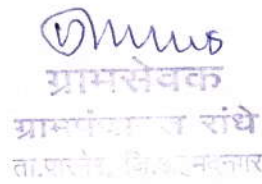 ग्रामसेवक
ग्रामपंचायत रांधे
ता.पारनेर, जि.अहमदनगर